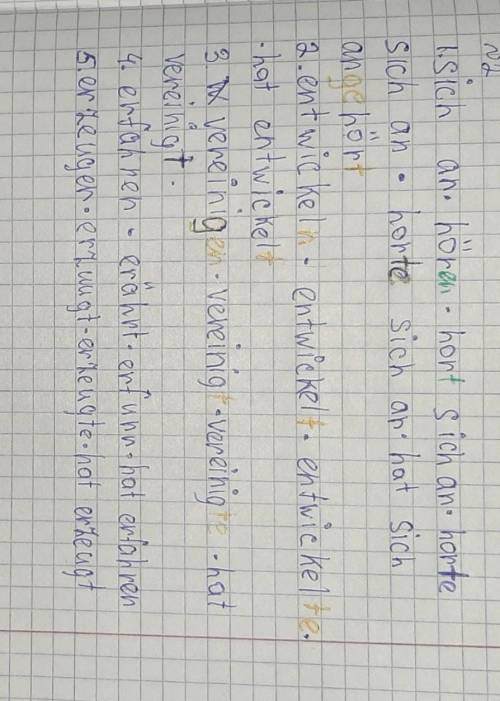 №2
1. Sich an · hören · hort sich an · horte
sich an · horte sich an · hat sich
angehört
2. entwickeln · entwickelt · entwickelte ·
· hat entwickelt
3. vereinigen · vereinigt · vereinigte · hat
vereinigt ·
4. erfahren · erährt · erfunr · hat erfahren
5. erzeugen · erzuugt · erzeugte · hat erzeugt